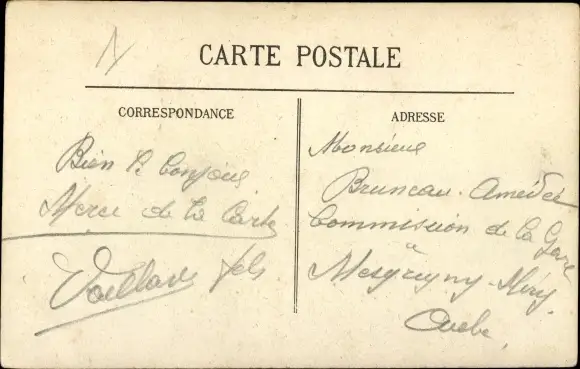 CARTE POSTALE
CORRESPONDANCE
Bien le bonjour
Merci de la Carte
Vaillant fils
ADRESSE
Monsieur
Bruneau Amédée
Commission de la Gare
à
Mesgrigny-Méry
Aube.